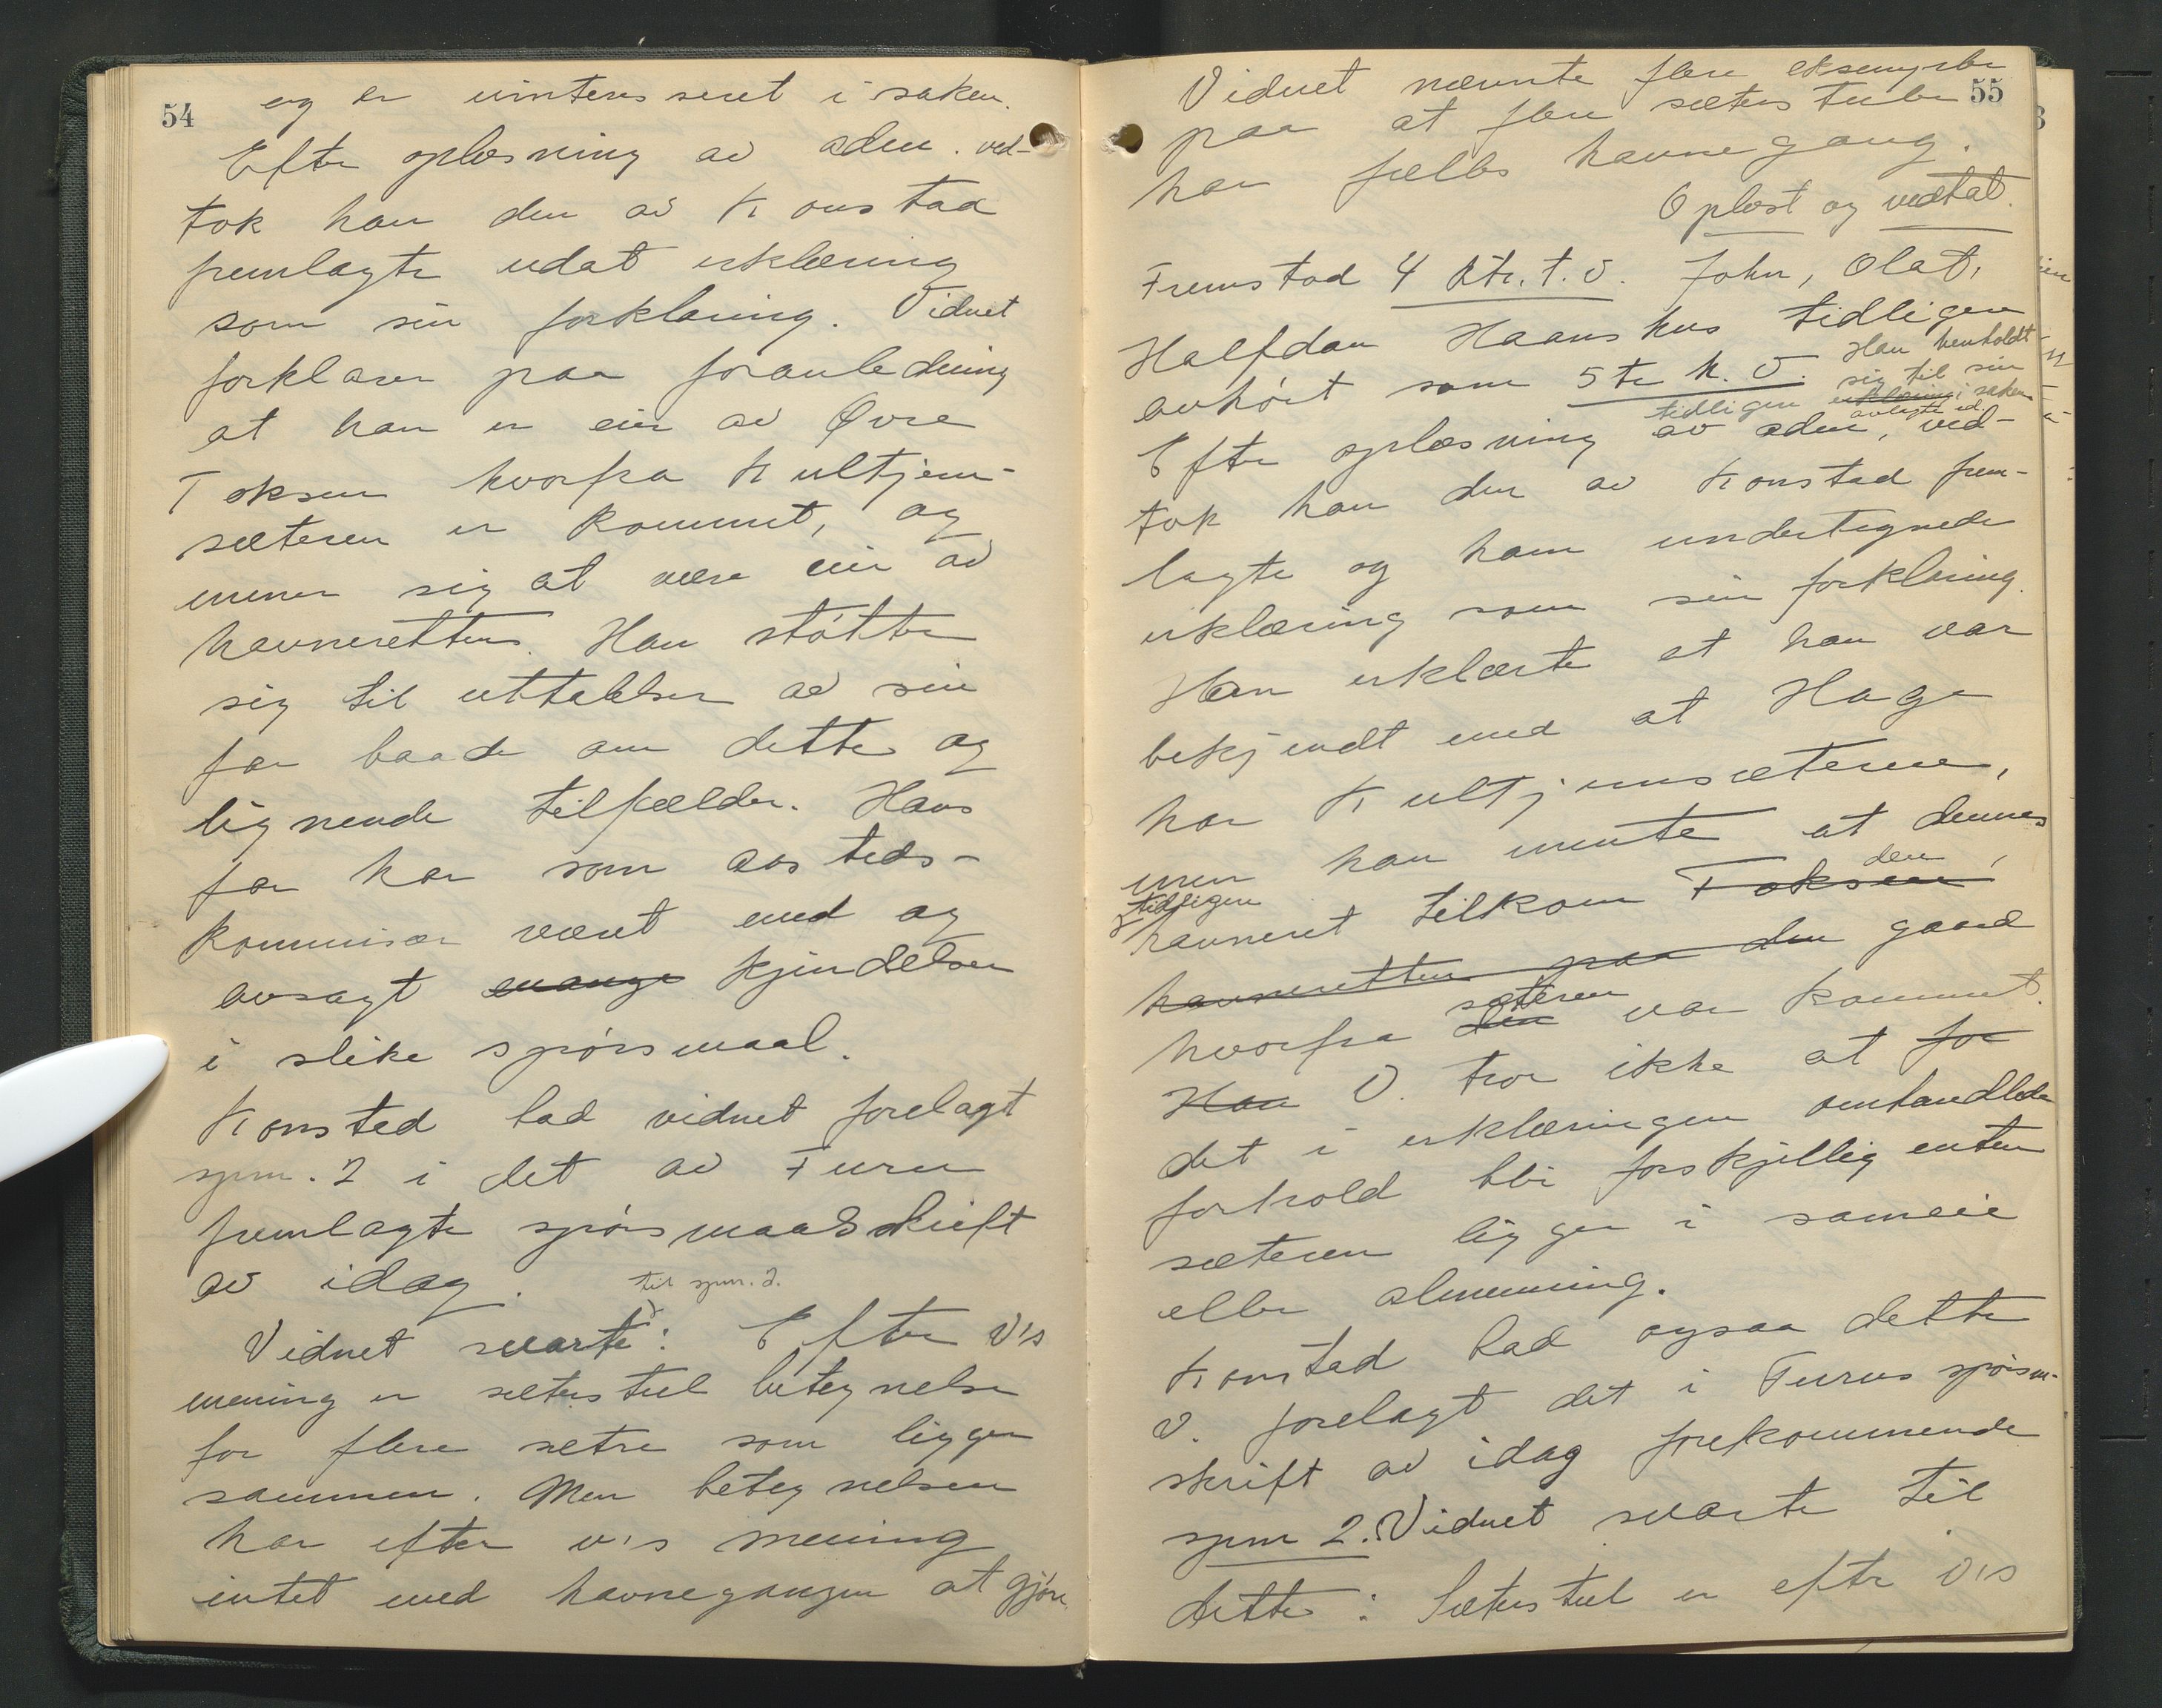 54
og er uinteresseret i saken.
Efter oplæsning av æden. ved-
tok han den av Konstad
fremlagte udat erklæring
som sin forklaring. Vidnet
forklarer paa foranledning
at han er eier av Øvre
Toksen hvorfra Kultjern-
sæteren er kommet, og
mener sig at være eier av
havneretten. Han støtter
sig til uttalelser av sin
far baade om dette og
lignende tilfælder. Hans
far har som aasteds-
kommisær været med og
avsagt mange kjendelser
i slike spörsmaal.
Konstad bad vidnet forelagt
spm. 2 i det av Furu
fremlagte spörsmaalsskrift
av idag.
til spm. 2.
Vidnet svarte: Efter v's
mening er sæterstul betegnelse
for flere sætre som ligger
sammen. Men betegnelsen
har efter v's mening
intet med havnegangen at gjöre
55
Vidnet nævnte flere eksempler
paa at flere sæterstuler
har fælles havnegang.
Oplæst og vedtat.
Fremstod 4 ktr. t. v. John, Olaf,
Halfdan Haanshus tidligere
avhört som 5te h. v. Han henholdt
sig til sin
tidligere erklæring i saken
avlagte ed.
Efter oplæsning av æden, ved-
tok han den av Konstad frem-
lagte og ham undertegnede
erklæring som sin forklaring.
Han erklærte at han var
bekjendt med at Hage
har Kultjernsæteren,
men han mente at dennes
tidligere
havneret tilkom Toksen,
den
havneretten paa den gaard
hvorfra den var kommet.
sæteren
Han V. tror ikke at for
det i erklæringen omhandlede
forhold bli forskjellig enten
sæteren ligger i sameie
eller almenning.
Konstad bad ogsaa dette
v. forelagt det i Furus spörsm.-
skrift av idag forekommende
spm 2. Vidnet svarte til
dette: Sæterstul er efter v's